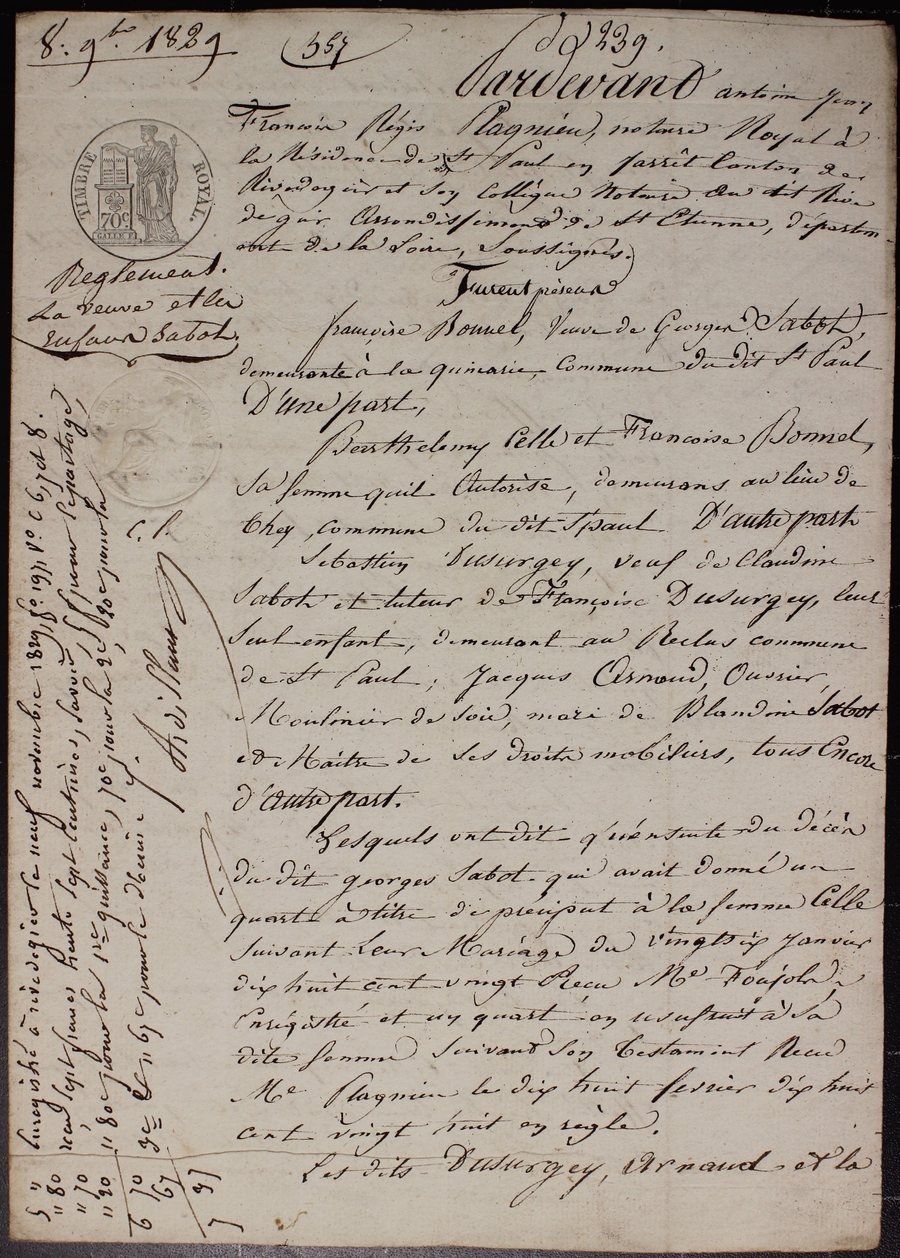 8. 9bre 1829
357
239.
Pardevant antoine Jean
François Régis Plagnieu, notaire Royal à
la Résidence de St Paul en Jarrêt Canton de
Rivedegier et son collègue Notaire du dit Rive
degier Arrondissement de St Etienne, départem-
ent de la Loire, Soussignés.
TIMBRE ROYAL.
70c
Reglement.
La veuve et les
Enfans Sabot.
Furent présens
françoise Bonnel, Veuve de Georges Sabot,
demeurante à la quinarie, commune du dit St Paul
D'une part,
Berthelemy Celle et Francoise Bonnel,
sa femme qu'il Autorise, demeurans au lieu de
Chey, commune du dit St paul D'autre part
Sebastien Dusurgey, veuf de Claudine
Sabot et tuteur de Françoise Dusurgey, leur
seul enfant, demeurant au Reclus commune
de St Paul, Jacques Arnaud, Ouvrier
Moulinier de soie, mari de Blandine Sabot
et Maitre de ses droits mobiliers, tous Encore
d'autre part.
Lesquels ont dit qu'ensuite du décès
du dit georges Sabot qui avait donné un
quart à titre de préciput à la femme Celle
suivant leur Mariage du vingt six Janvier
dix huit cent vingt Recu Me Foujols
Enrégistré et un quart en usufruit à sa
dite femme suivant son testament Recu
Me Plagnieu le dix huit fevrier dix huit
cent vingt huit en règle.
Les dits Dusurgey, Arnaud et la
Enregistré à rivedegier le neuf novembre 1829 fo 191 Vo C 6, 7 et 8.
recu sept francs trente sept centimes, savoir, 5 f pour le partage,
80 c pour la 1re quittance, 70 c pour la 2e, 20 c pour la
3e et 67 c pour le dernier
5 "
" 80
" 70
" 20
" 67
7 37